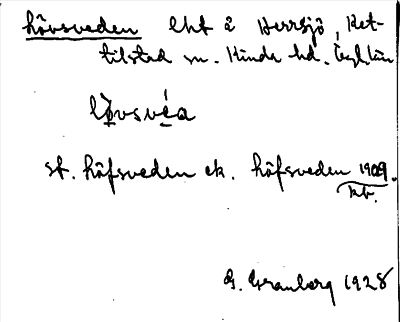 hövsveden lht å Herrsjö, Ket-
tilstad sn. Kinda hd. Ögl. län
lö̀vsvéa
st. höfsveden ek. höfsveden 1909.
kb.
G. Granberg 1928